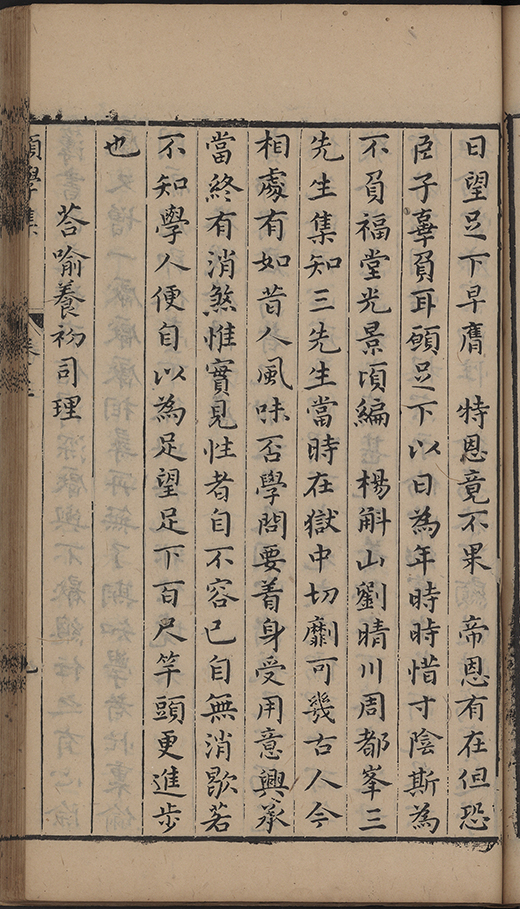 日望足下早膺　特恩竟不果　帝恩有在但恐
臣子辜負耳願足下以日為年時時惜寸陰斯為
不負福堂光景頃編　楊斛山劉晴川周都峯三
先生集知三先生當時在獄中切劘可幾古人今
相處有如昔人風味否學問要着身受用意興承
當終有消煞惟實見性者自不容已自無消歇若
不知學人便自以為足望足下百尺竿頭更進步
也
荅喻養初司理
願學集
卷之三
九